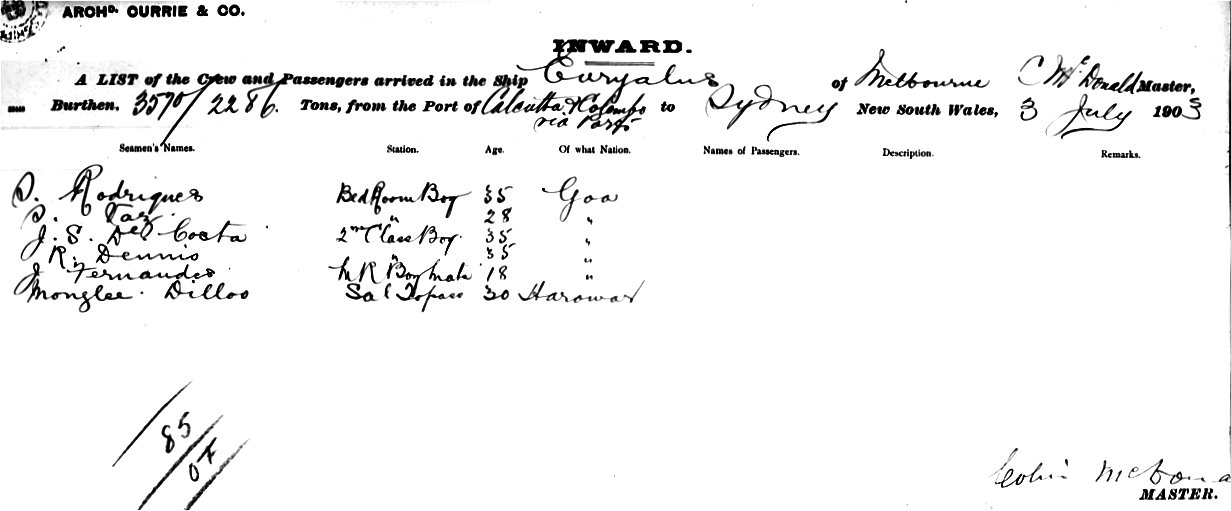 ARCHD. CURRIE & CO.
INWARD.
A LIST of the Crew and Passengers arrived in the Ship Euryalus of Melbourne C McDonald Master,
Burthen, 3570/2286. Tons, from the Port of Calcutta & Colombo via Ports to Sydney New South Wales, 3 July 1903
Seamen's Names. Station. Age. Of what Nation. Names of Passengers. Description. Remarks.
Rodrigues Bed Room Boy 35 Goa
" 28 "
J. S. De Costa 2nd Class Boy 35 "
R. Dennis " 35 "
J Fernandes M R Boy Mate 18 "
Monglee Dilloo Sal Topass 30
85
07
Colin McDona
MASTER.